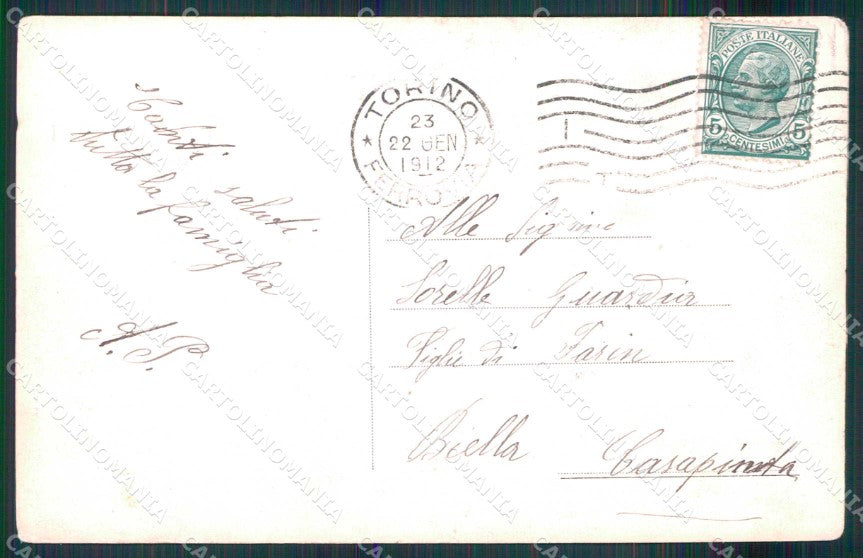 saluti
tutta la famiglia
A. P.
TORINO
23
22 GEN
1912
FERROVIA
POSTE ITALIANE
5 CENTESIMI 5
Alle Sig
Sorelle
Figlie di
Biella Casapinta
CARTOLINOMANIA